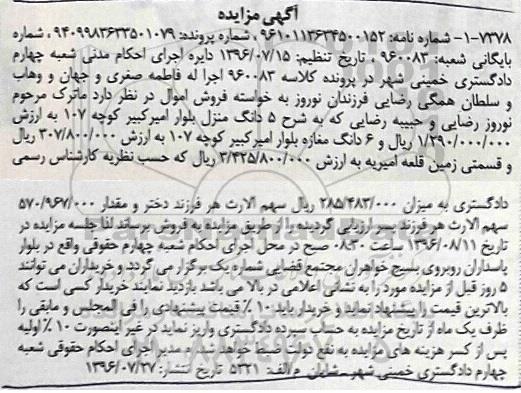 آگهی مزایده
۱-۷۳۷۸- شماره نامه: ۹۶۱۰۱۱۳۶۳۴۵۰۰۱۵۲ ، شماره پرونده: ۹۴۰۹۹۸۳۶۳۳۵۰۱۰۷۹ ، شماره
بایگانی شعبه: ۹۶۰۰۸۳ ، تاریخ تنظیم: ۱۳۹۶/۰۷/۱۵ دایره اجرای احکام مدنی شعبه چهارم
دادگستری خمینی شهر در پرونده کلاسه ۹۶۰۰۸۳ اجرا له فاطمه صغری و جهان و وهاب
و سلطان همگی رضایی فرزندان نوروز به خواسته فروش اموال در نظر دارد ماترک مرحوم
نوروز رضایی و حبیبه رضایی که به شرح ۵ دانگ منزل بلوار امیرکبیر کوچه ۱۰۷ به ارزش
۱/۲۹۰/۰۰۰/۰۰۰ ریال و ۶ دانگ مغازه بلوار امیرکبیر کوچه ۱۰۷ به ارزش ۳۰۷/۸۰۰/۰۰۰ ریال
و قسمتی زمین قلعه امیریه به ارزش ۳/۴۲۵/۸۰۰/۰۰۰ ریال که حسب نظریه کارشناس رسمی
دادگستری به میزان ۲۸۵/۴۸۳/۰۰۰ ریال سهم الارث هر فرزند دختر و مقدار ۵۷۰/۹۶۷/۰۰۰
سهم الارث هر فرزند پسر ارزیابی گردیده را از طریق مزایده به فروش برساند لذا جلسه مزایده در
تاریخ ۱۳۹۶/۰۸/۱۱ ساعت ۰۸:۳۰ صبح در محل اجرای احکام شعبه چهارم حقوقی واقع در بلوار
پاسداران روبروی بسیج خواهران مجتمع قضایی شماره یک برگزار می گردد و خریداران می توانند
۵ روز قبل از مزایده مورد را به نشانی اعلامی در بالا می باشد بازدید نمایند خریدار کسی است که
بالاترین قیمت را پیشنهاد نماید و خریدار باید ۱۰٪ قیمت پیشنهادی را فی المجلس و مابقی را
ظرف یک ماه از تاریخ مزایده به حساب سپرده دادگستری واریز نماید در غیر اینصورت ۱۰٪ اولیه
پس از کسر هزینه های مزایده به نفع دولت ضبط خواهد شد. مدیر اجرای احکام حقوقی شعبه
چهارم دادگستری خمینی شهر - شایان م/الف: ۵۳۲۱ تاریخ انتشار: ۱۳۹۶/۰۷/۲۷